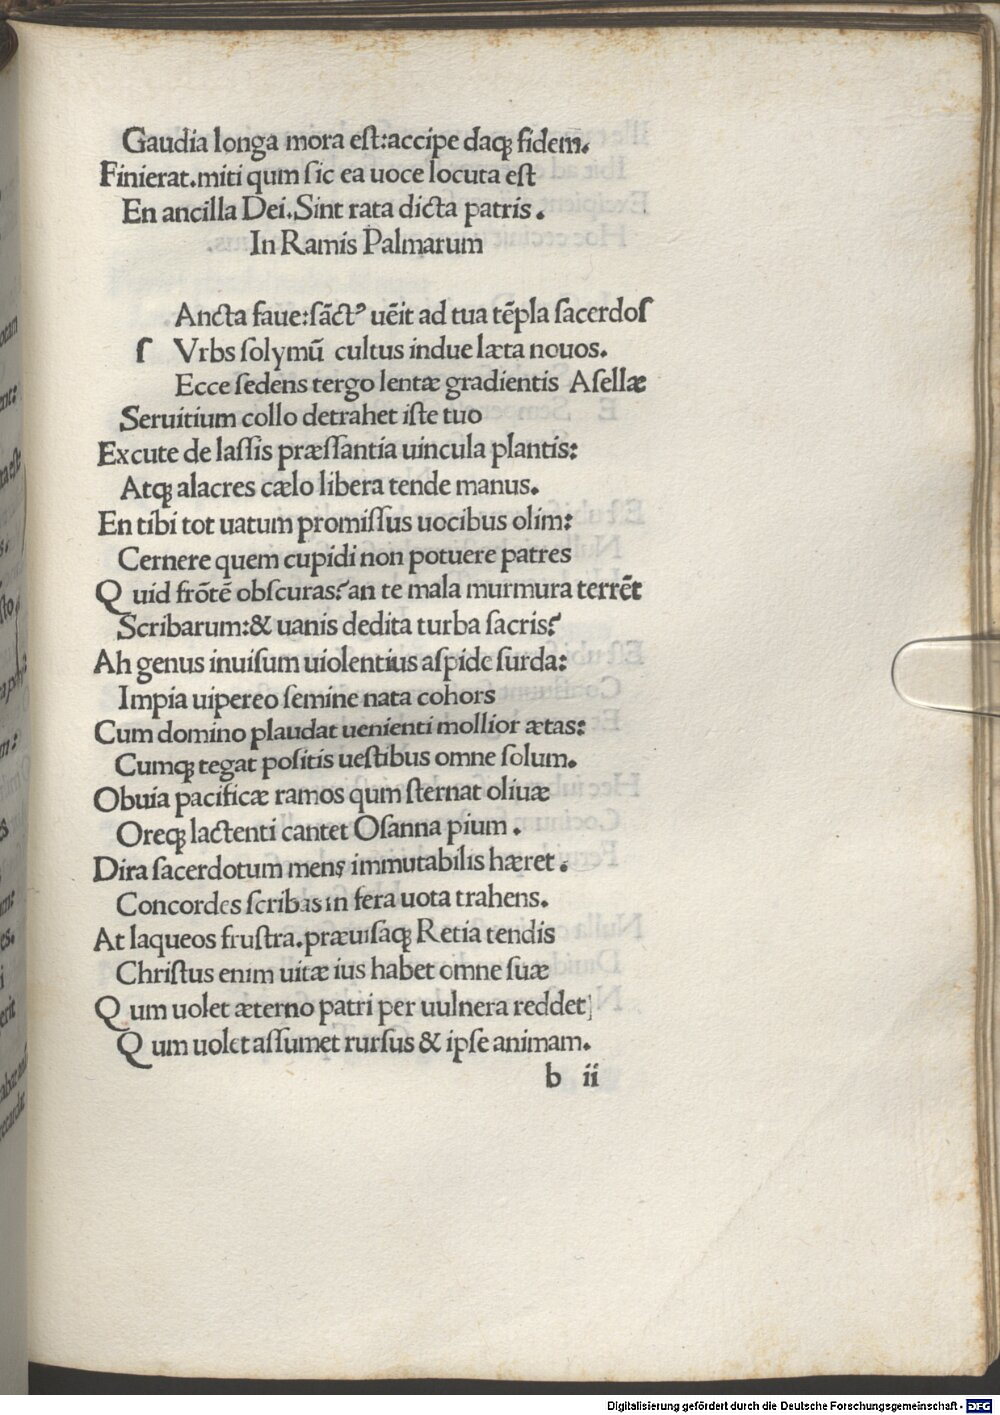 Gaudia longa mora eſt:accipe daqꝫ fidem.
Finierat.miti qum ſic ea uoce locuta eſt
En ancilla Dei.Sint rata dicta patris.
In Ramis Palmarum
Ancta faue:ſãctꝰ uẽit ad tua tẽpla ſacerdoſ
ſ Vrbs ſolymũ cultus indue læta nouos.
Ecce ſedens tergo lentæ gradientis Aſellæ
Seruitium collo detrahet iſte tuo
Excute de laſſis præſſantia uincula plantis:
Atqꝫ alacres cælo libera tende manus.
En tibi tot uatum promiſſus uocibus olim:
Cernere quem cupidi non potuere patres
Quid frõtẽ obſcuras?an te mala murmura terrẽt
Scribarum:& uanis dedita turba ſacris?
Ah genus inuiſum uiolentius aſpide ſurda:
Impia uipereo ſemine nata cohors
Cum domino plaudat uenienti mollior ætas:
Cumqꝫ tegat poſitis ueſtibus omne ſolum.
Obuia pacificæ ramos qum ſternat oliuæ
Oreqꝫ lactenti cantet Oſanna pium.
Dira ſacerdotum mens immutabilis hæret.
Concordes ſcribas in fera uota trahens.
At laqueos fruſtra.præuiſaqꝫ Retia tendis
Chriſtus enim uitæ ius habet omne ſuæ
Qum uolet æterno patri per uulnera reddet
Qum uolet aſſumet rurſus & ipſe animam.
b ii
Digitalisierung gefördert durch die Deutsche Forschungsgemeinschaft - DFG